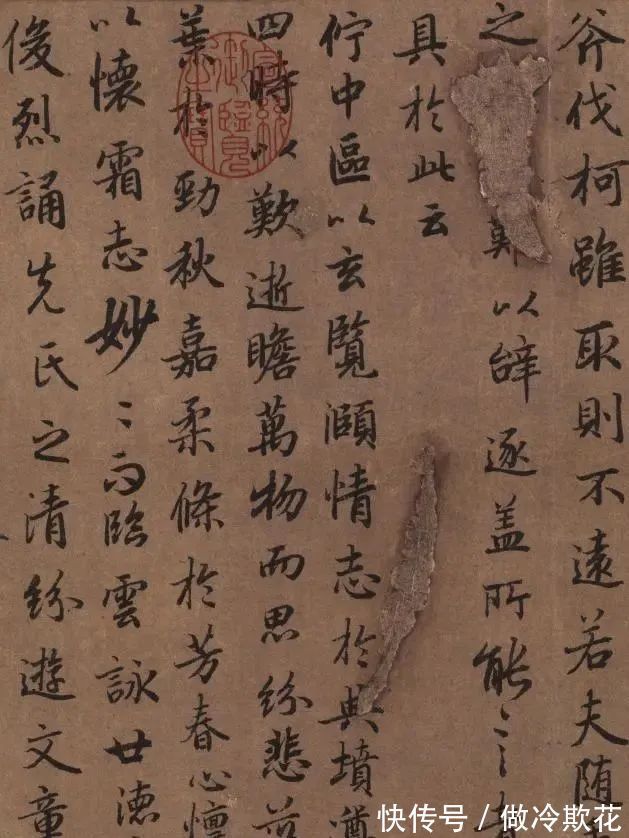 斧伐柯雖取則不遠若夫随
之以辤逐盖所能〻
具於此云
佇中區以玄覽頤情志於典墳
四時以歎逝瞻萬物而思紛悲
葉於勁秋嘉柔條於芳春心懍
以懷霜志妙〻而臨雲詠世德
俊烈誦先氏之清紛遊文章
宣統御覽之寶
快传号 / 做冷欺花